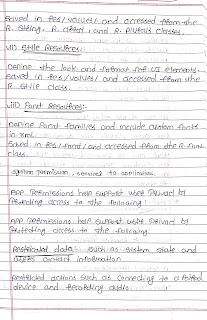 saved in res/values/ and accessed from the
R. string, R. array, and R. plurals classes.
vii) Style Resources:-
Define the look and format of UI elements.
saved in res/values/ and accessed from the
R. style class.
viii) Font Resources:-
Define font families and include custom fonts
in xml.
Saved in res/font/ and accessed from the R.font
class.
System permission, services to application.
App permissions help support user privacy by
protecting access to the following:
App permissions help support user privacy by
protecting access to the following.
Restricted data, such as system state and
users contact information
Restricted actions such as connecting to a paired
device and recording audio.